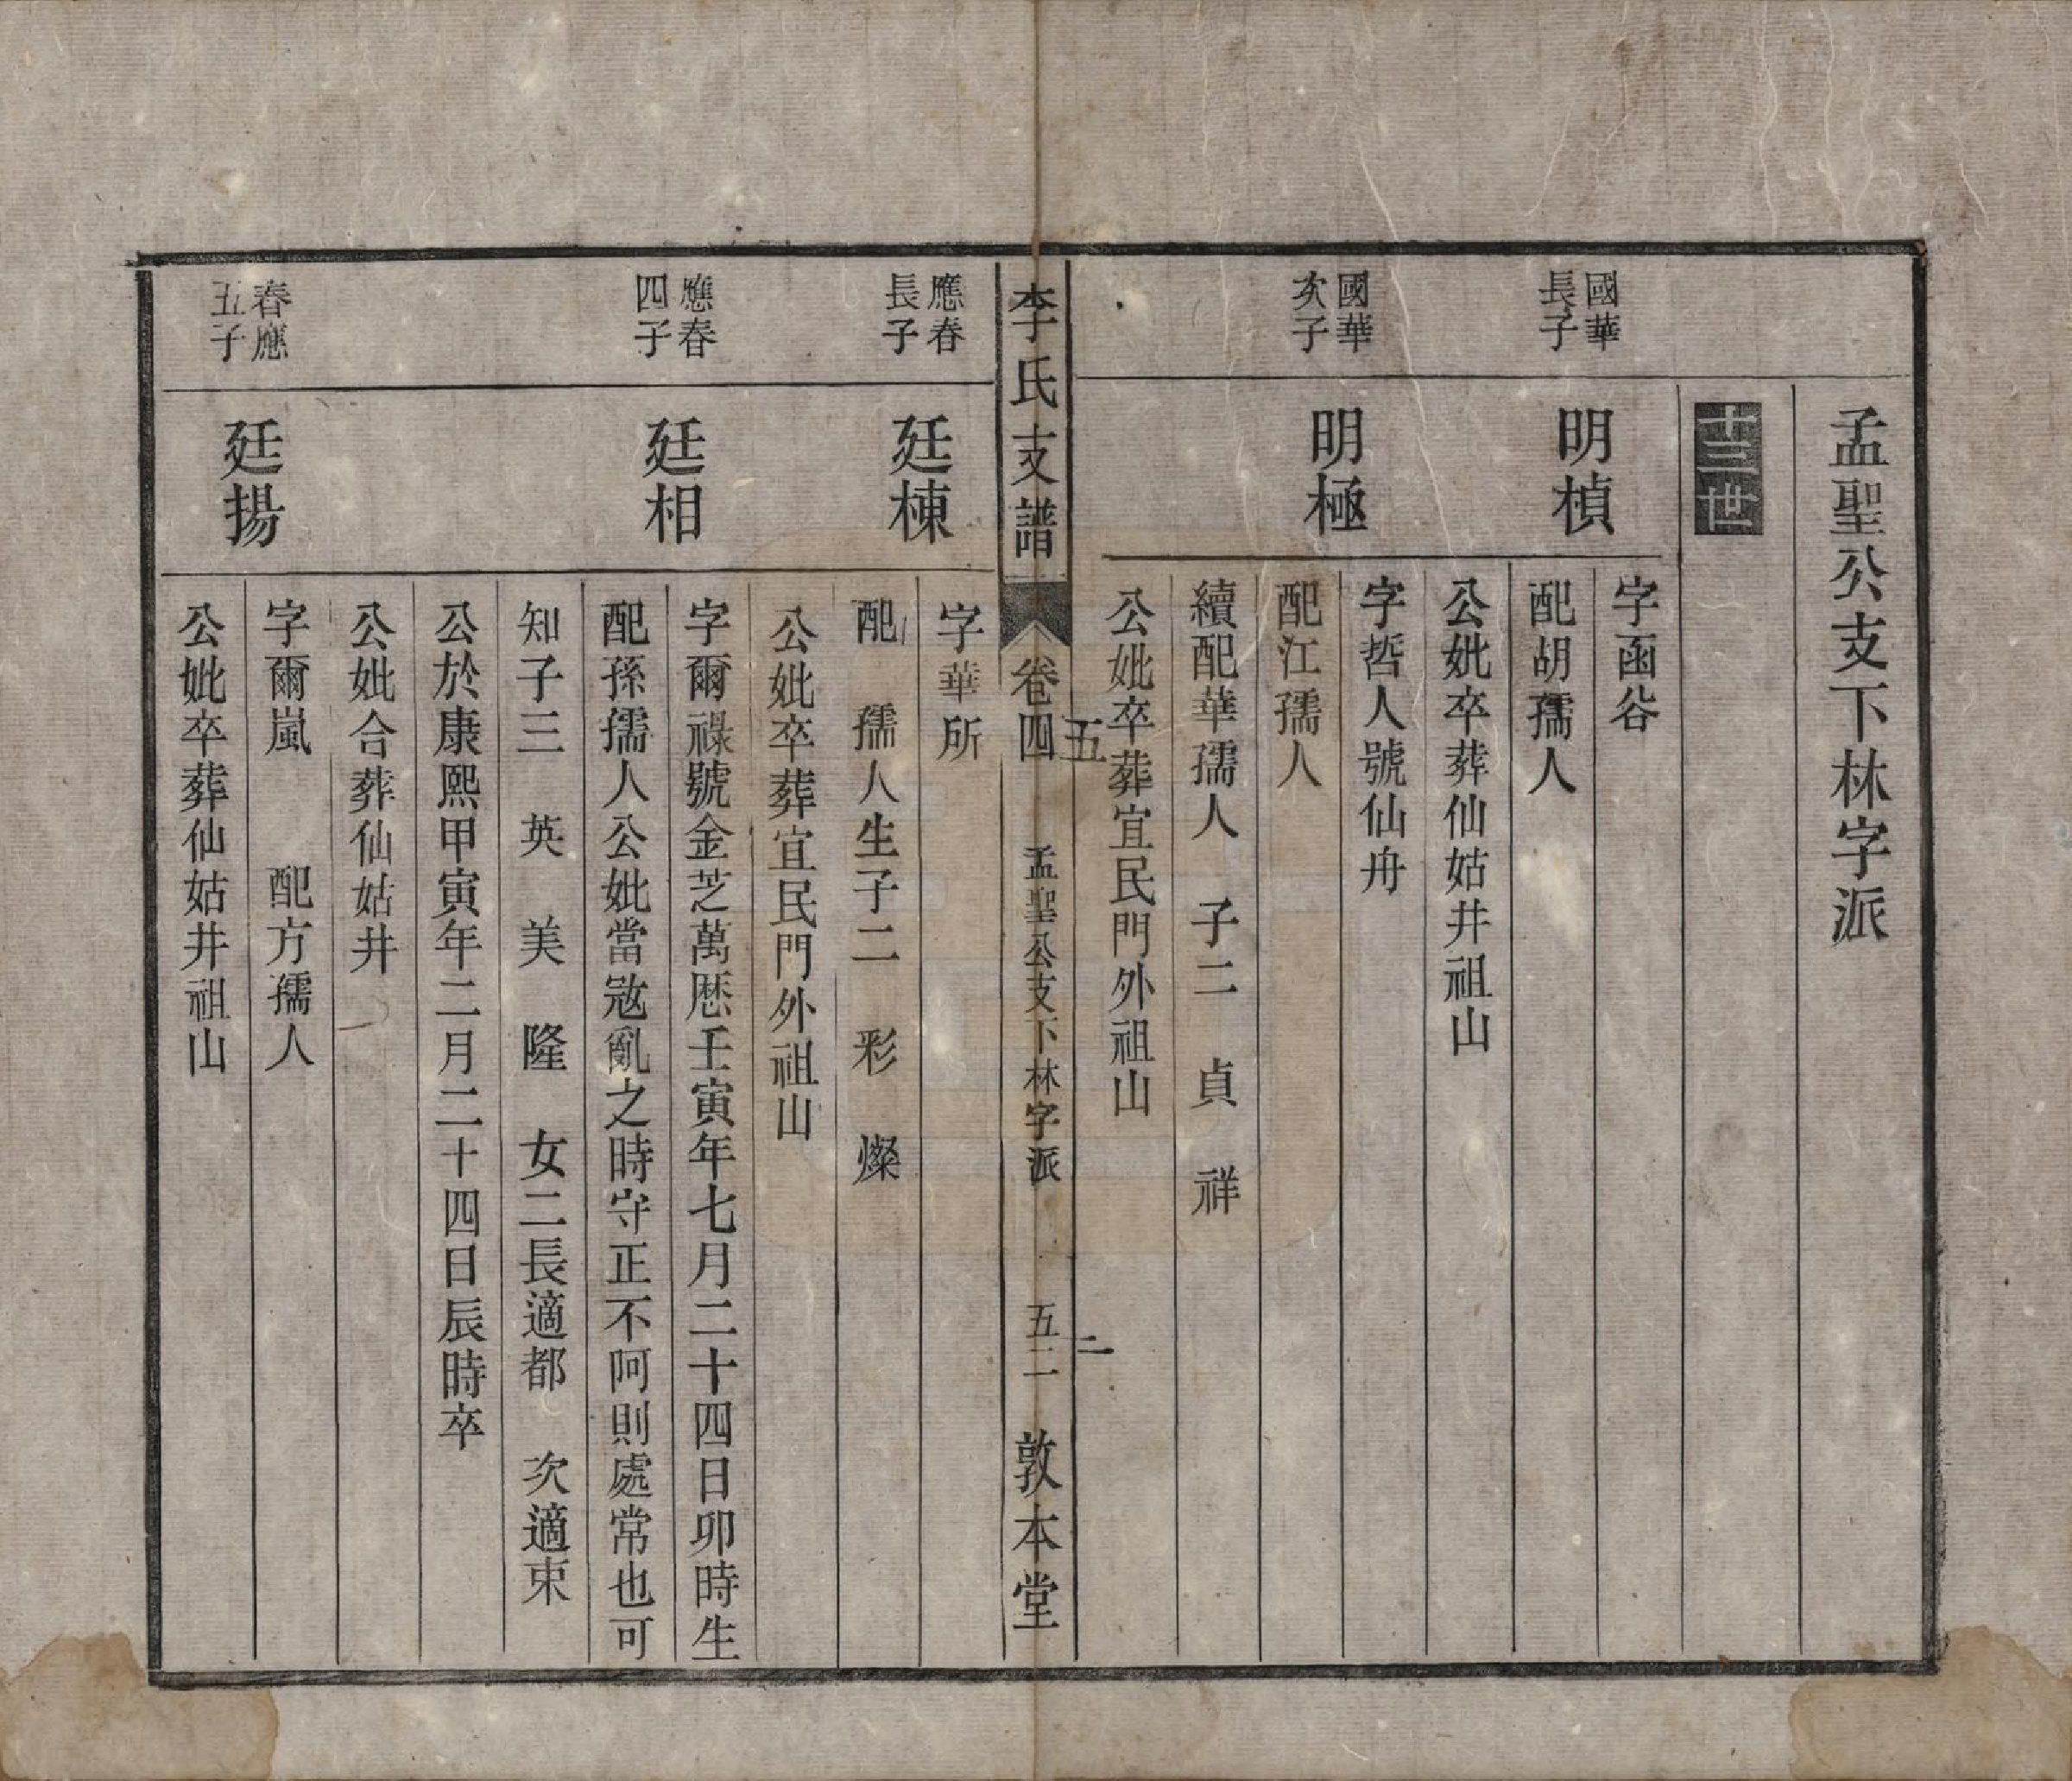 孟聖公支下林字派
十三世
國華
長子
明楨
字函谷
配胡孺人
公妣卒葬仙姑井祖山
國華
次子
明極
字哲人號仙舟
配江孺人
續配華孺人　子二　貞　祥
公妣卒葬宜民門外祖山
五
二
李氏支譜
卷四
孟聖公支下林字派
五二
敦本堂
應春
長子
廷棟
字華所
配　孺人生子二　彩　燦
公妣卒葬宜民門外祖山
應春
四子
廷相
字爾祿號金芝萬厯壬寅年七月二十四日卯時生
配孫孺人公妣當冦亂之時守正不阿則處常也可
知子三　英　美　隆　女二長適都　次適束
公於康熙甲寅年二月二十四日辰時卒
公妣合葬仙姑井
春應
五子
廷揚
字爾嵐　　配方孺人
公妣卒葬仙姑井祖山